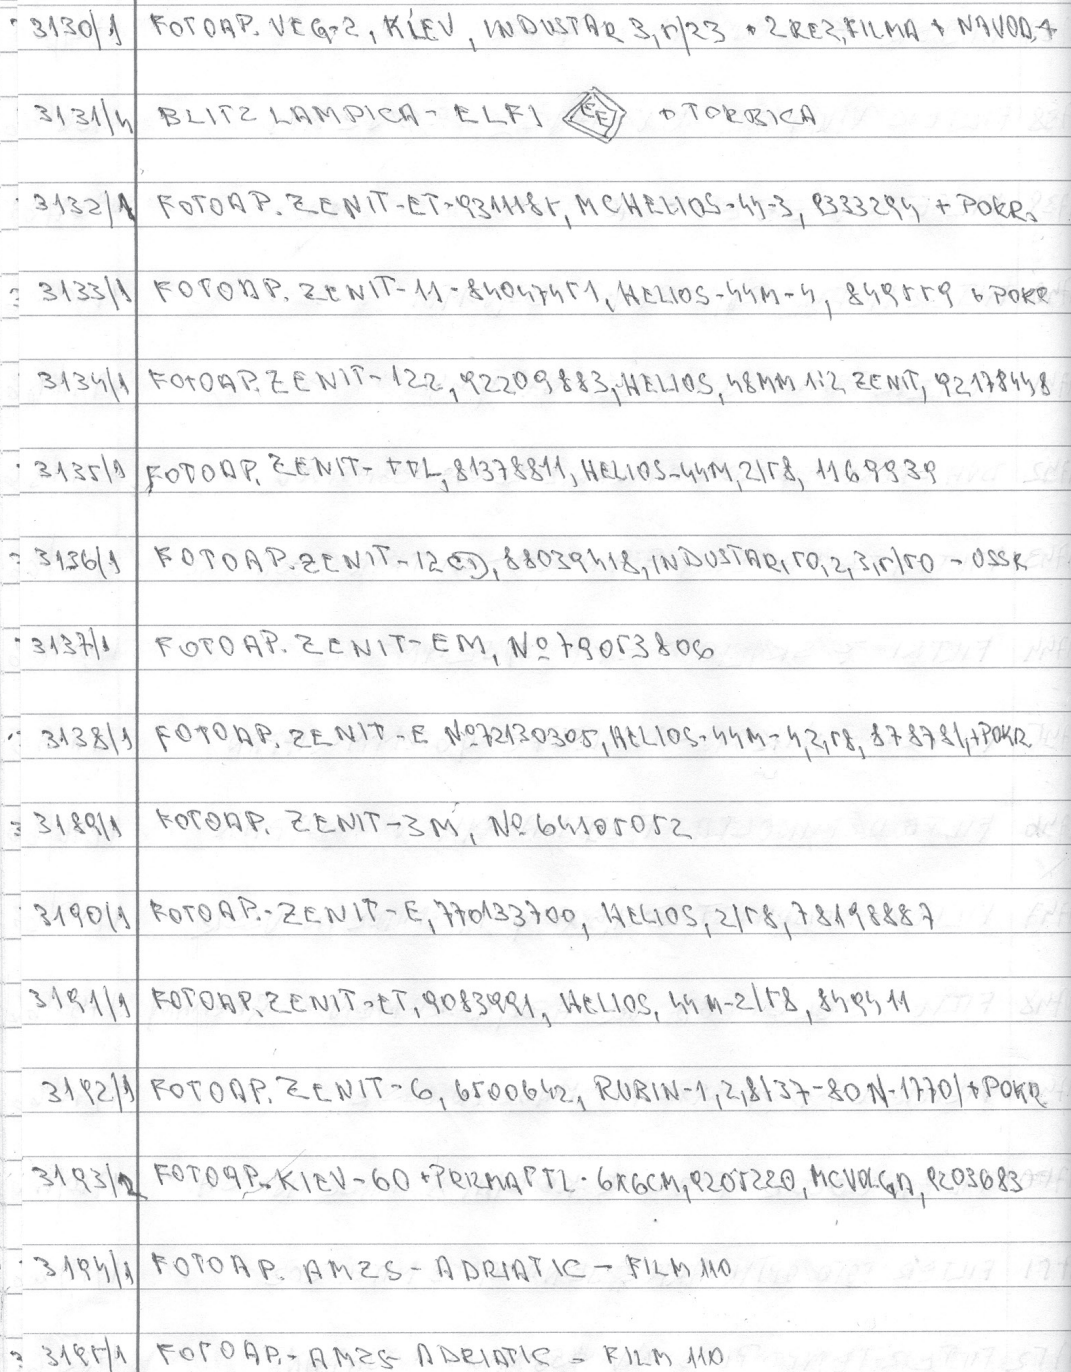 3130/1 FOTOAP. VEGA-2, KIEV, INDUSTAR 3,5/23 + 2 REZ.FILMA + NAVOD.+
3131/4 BLITZ LAMPICA - ELFI EE + TORBICA
3132/1 FOTOAP. ZENIT-ET-9311185, MCHELIOS-44-3, 9333294 + POKR.
3133/1 FOTOAP. ZENIT-11-84047451, HELIOS-44M-4, 849559 + POKR
3134/1 FOTOAP. ZENIT-122, 92209883, HELIOS, 48MM 1:2 ZENIT, 92178448
3135/1 FOTOAP. ZENIT-TTL, 81378811, HELIOS-44M, 2/58, 1169939
3136/1 FOTOAP. ZENIT-12CD, 88039418, INDUSTAR, 50,2, 3,5/50 - OSSR
3137/1 FOTOAP. ZENIT-EM, Nº 79053806
3138/1 FOTOAP. ZENIT-E Nº72130305, HELIOS-44M-4,2,58, 878781,+POKR
3189/1 FOTOAP. ZENIT-3M, Nº 64105052
3190/1 FOTOAP.-ZENIT-E, 770133700, HELIOS, 2/58, 78198887
3191/1 FOTOAP. ZENIT-ET, 9083991, HELIOS, 44M-2/58, 849411
3192/1 FOTOAP. ZENIT-6, 6500642, RUBIN-1, 2,8/37-80 N-1770/+POKR
3193/2 FOTOAP. KIEV-60 +PRIZMA TTL-6X6CM, 9205220, MCVOLGA, 9203683
3194/1 FOTOAP. AMZS-ADRIATIC-FILM 110
3195/1 FOTOAP.-AMZS-ADRIATIC-FILM 110